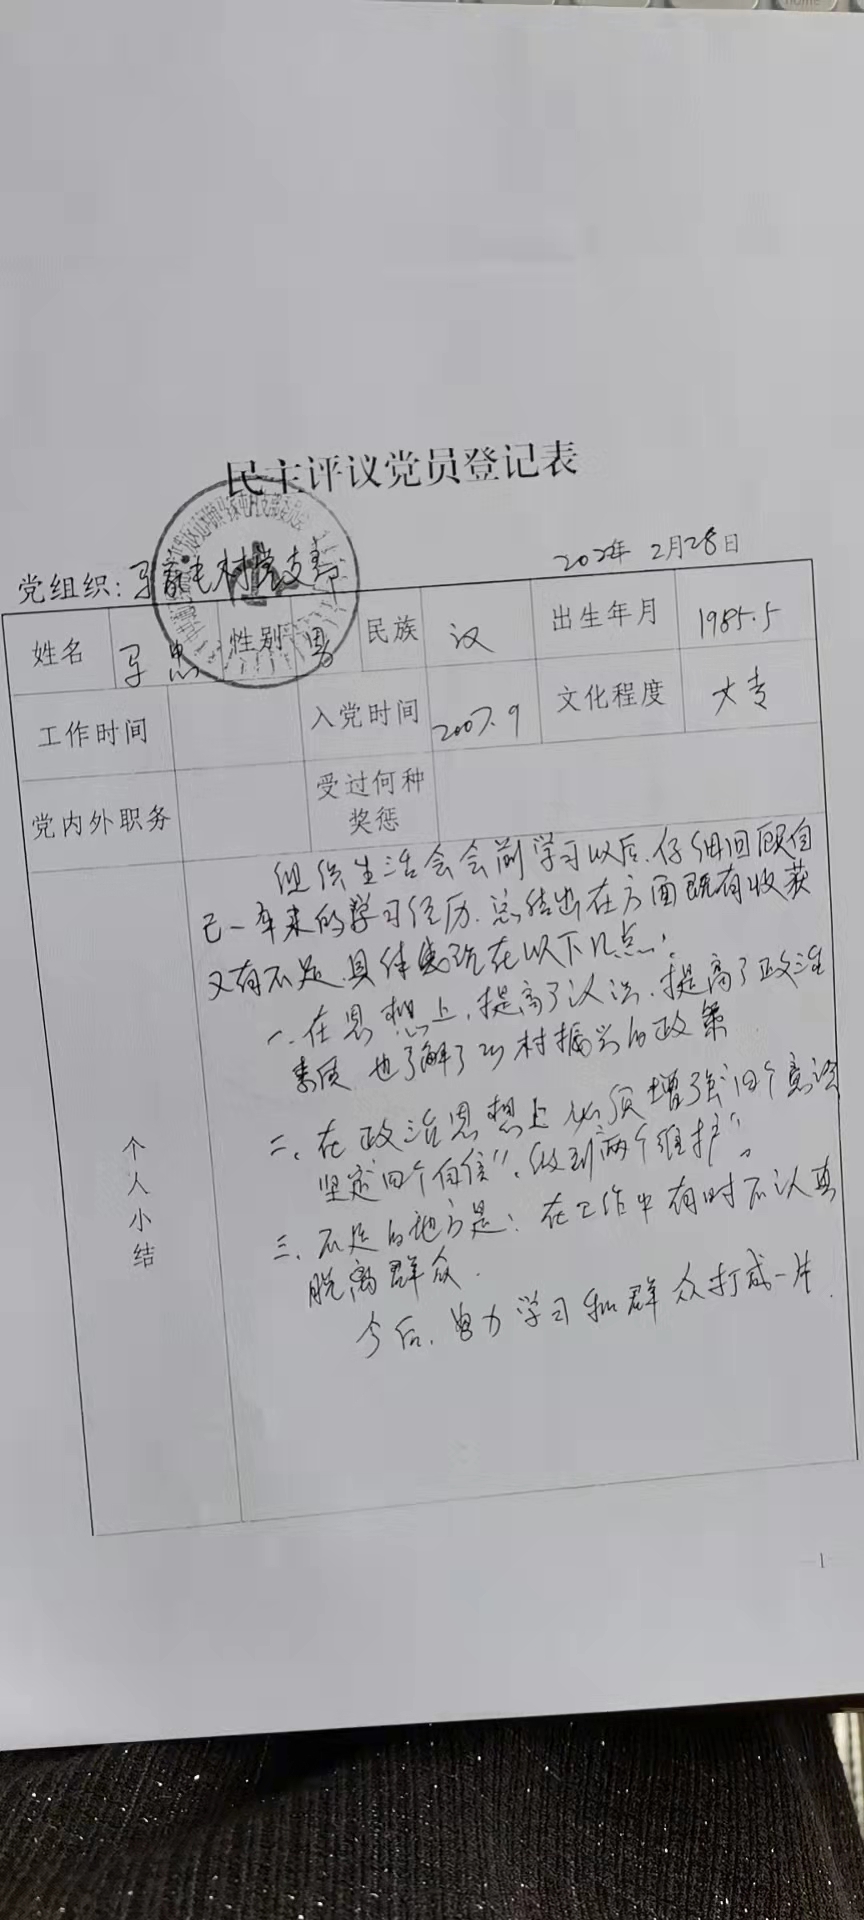 民主评议党员登记表
党组织：马家屯村党支部
202 年 2月28日
姓名 马忠 性别 男 民族 汉 出生年月 1985.5
工作时间 入党时间 2007.9 文化程度 大专
党内外职务 受过何种奖惩
个人小结
组织生活会会前学习以后、仔细回顾自
己一年来的学习经历、总结出在方面既有收获
又有不足具体表现在以下几点：
一、在思想上，提高了认识、提高了政治
素质 也了解了 村振兴的政策
二、在政治思想上必须增强"四个意识
坚定四个自信"、做到"两个维护"。
三、不足的地方是：在工作中有时不认真
脱离群众.
今后、努力学习和群众打成一片.
1